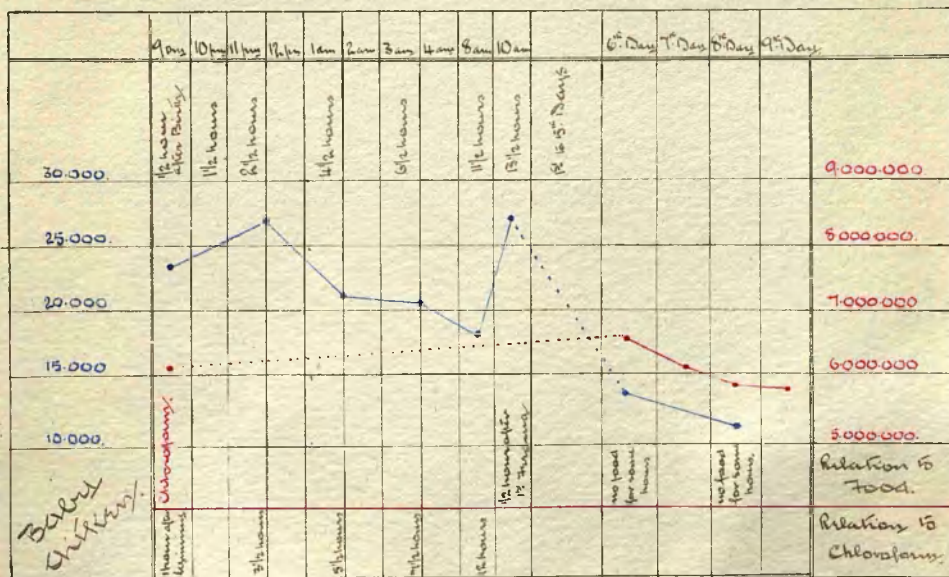 9 pm 10 pm 11 pm 12 pm 1 am 2 am 3 am 4 am 8 am 10 am 6th Day 7th Day 8th Day 9th Day
1/2 hour
after Birth
1 1/2 hours
2 1/2 hours
4 1/2 hours
6 1/2 hours
11 1/2 hours
13 1/2 hours
to 5th Days
30.000.
25.000.
20.000
15.000
10.000.
9.000.000
8.000.000.
7.000.000
6.000.000
5.000.000
Chloroform.
1/2 hour after
1st
no food
for some
hours
no food
for some
hours.
Relation to
Food.
Baby
1 hour after
beginning
3 1/2 hours
5 1/2 hours
7 1/2 hours
12 hours
Relation to
Chloroform